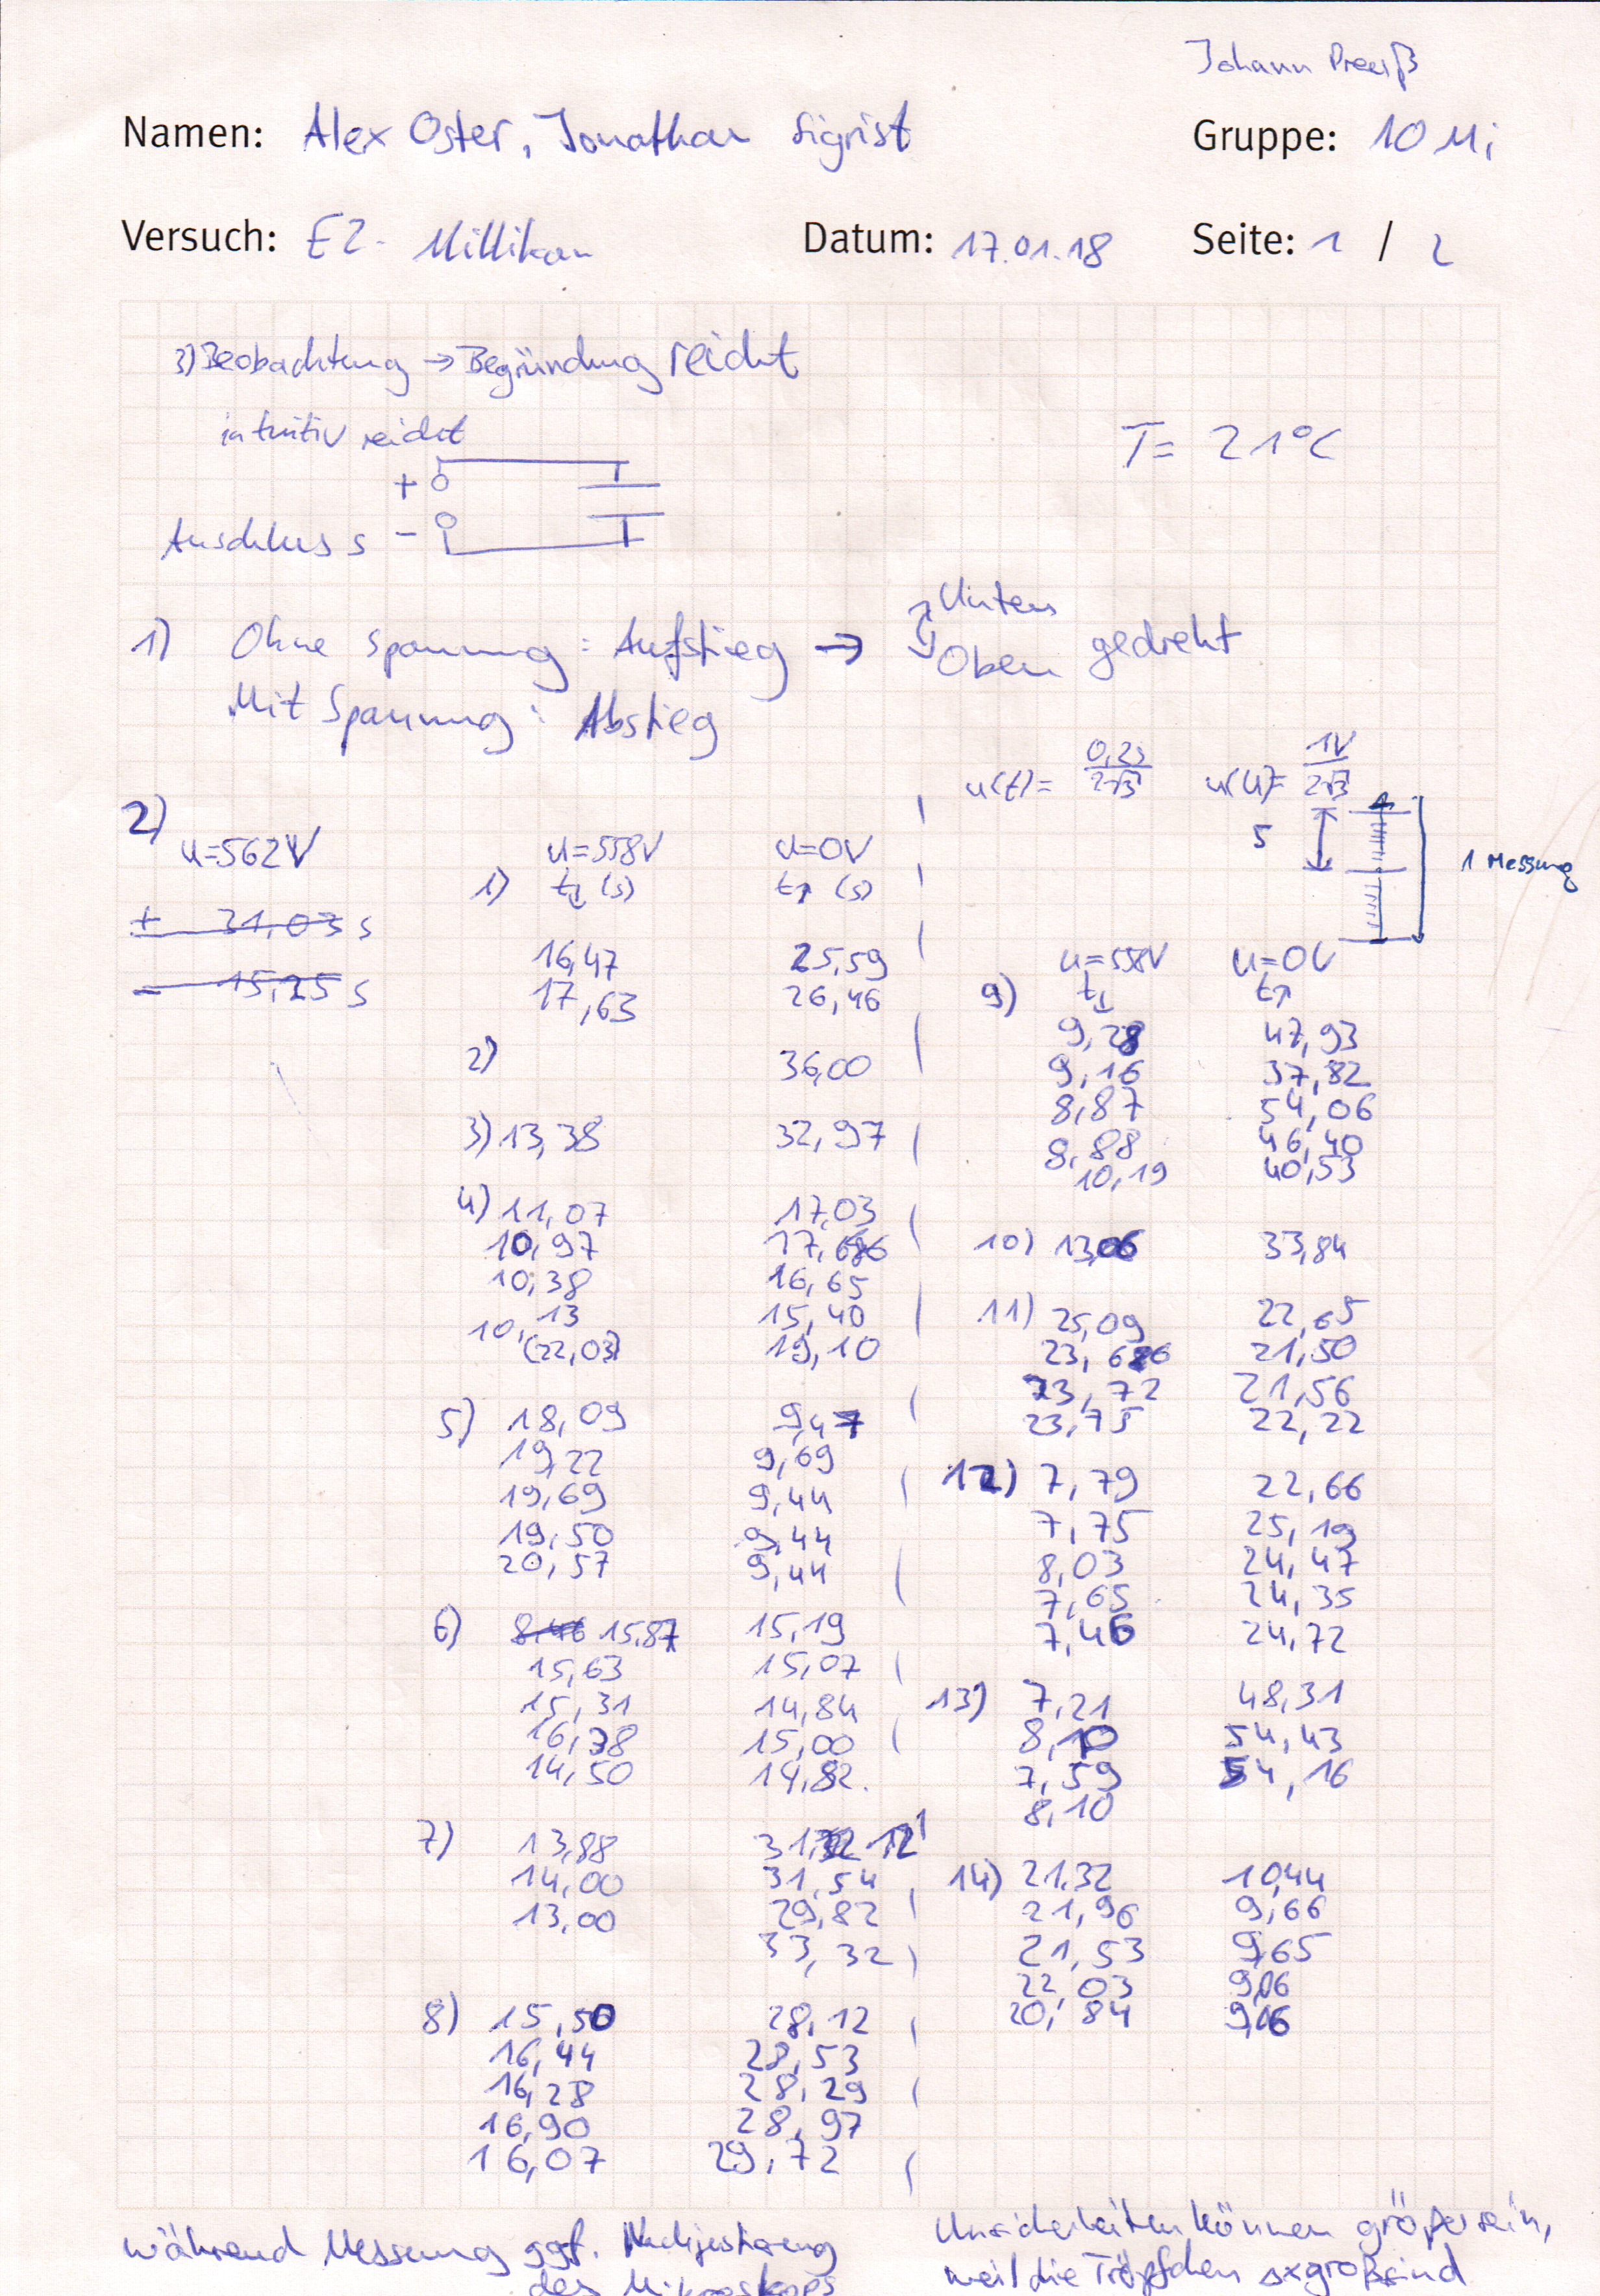 Johann Preuß
Namen: Alex Oster, Jonathan Sigrist
Gruppe: 10 Mi
Versuch: E2 - Millikan
Datum: 17.01.18
Seite: 1 / 2
3) Beobachtung → Begründung reicht
intuitiv reicht
T = 21°C
+
Anschluss -
1) Ohne Spannung: Aufstieg → Unten
Oben gedreht
Mit Spannung: Abstieg
u(t) = 0,2s / 2√3
u(U) = 1V / 2√3
5
1 Messung
2)
U=562V
+ 31,03 s
- 15,25 s
U=558V U=0V
1) t↓ (s) t↑ (s)
16,47 25,59
17,63 26,46
2) 36,00
3) 13,38 32,97
4) 11,07 17,03
10,97
10,38 16,65
10,13 15,40
(22,03) 19,10
5) 18,09 9,47
19,22 9,69
19,69 9,44
19,50 9,44
20,57 9,44
6) 8,46 15,87 15,19
15,63 15,07
15,31 14,84
16,38 15,00
14,50 14,82
7) 13,88
14,00 31,54
13,00 29,82
33,32
8) 15,50 28,12
16,44 28,53
16,28 28,29
16,90 28,97
16,07 29,72
U=558V U=0V
9) t↓ t↑
9,28 47,93
9,16 37,82
8,87 54,06
8,88 46,40
10,19 40,53
10) 13,06 33,84
11) 25,09 22,65
21,50
23,72 21,56
23,75 22,22
12) 7,79 22,66
7,75 25,19
8,03 24,47
7,65 24,35
7,46 24,72
13) 7,21 48,31
8,10 54,43
7,59 54,16
8,10
14) 21,32 10,44
21,96 9,66
21,53 9,65
22,03
20,84
während Messung ggf. Nachjustierung
des Mikroskops
Unsicherheiten können größer sein,
weil die Tröpfchen so groß sind